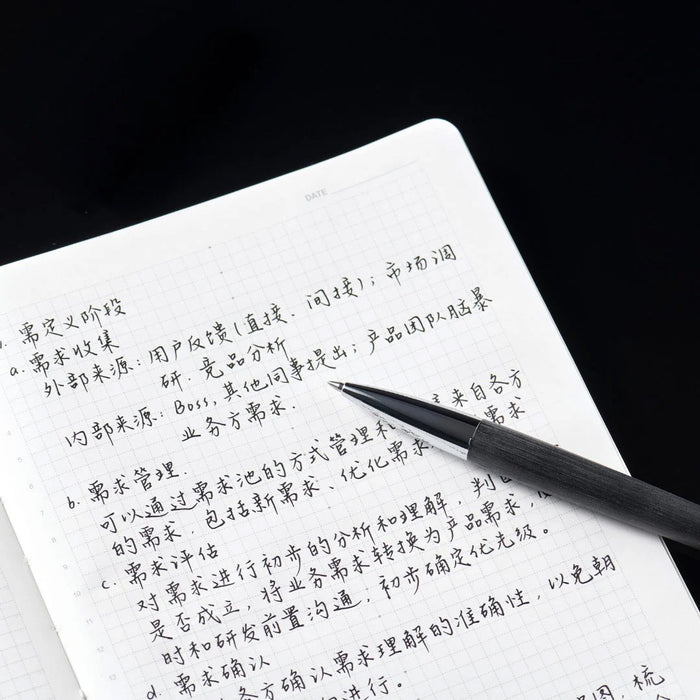 DATE
需定义阶段
a. 需求收集
外部来源：用户反馈(直接、间接)；市场调
研. 竞品分析
内部来源：Boss,其他同事提出；产品团队脑暴
业务方需求.
b. 需求管理.
可以通过需求池的方式管理和 来自各方
的需求，包括新需求、优化需求 需求
c. 需求评估
对需求进行初步的分析和理解，判
是否成立，将业务需求转换为产品需求，
时和研发前置沟通，初步确定优先级。
d. 需求确认
各方确认需求理解的准确性，以免朝
进行。
梳